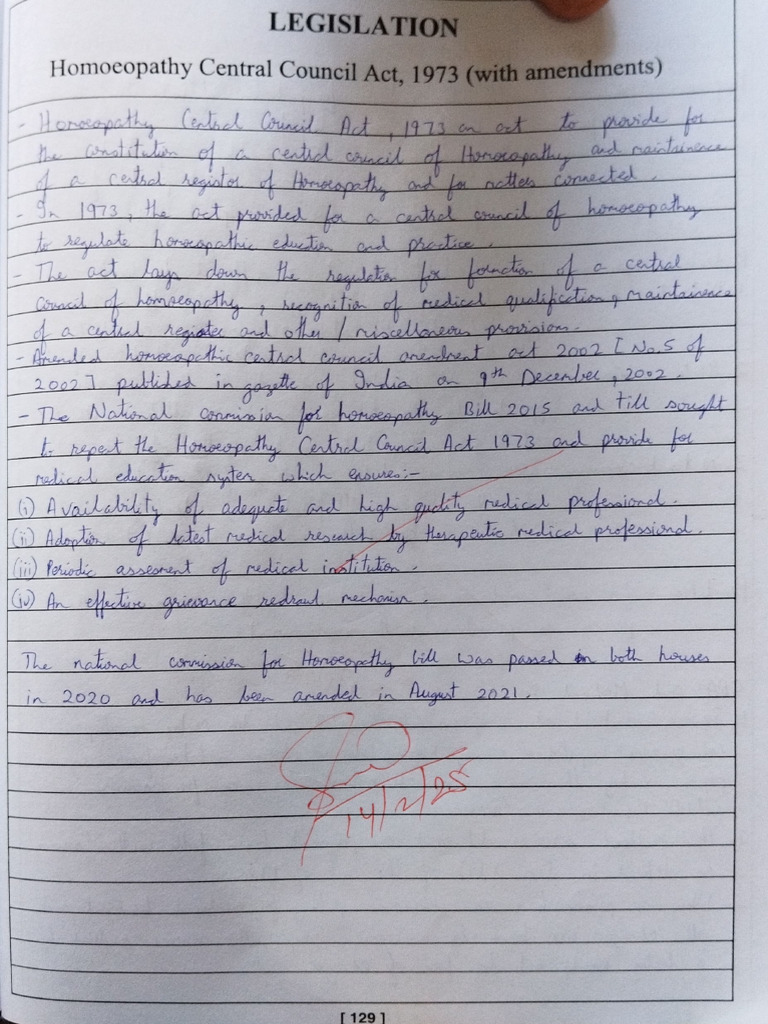 LEGISLATION
Homoeopathy Central Council Act, 1973 (with amendments)
- Homoeopathy Central Council Act, 1973 an act to provide for
the constitution of a central council of Homoeopathy and maintainence
of a central register of Homoeopathy and for matters connected.
- In 1973, the act provided for a central council of homoeopathy
to regulate homoeopathic eduction and practice.
- The act lays down the regulation for formation of a central
Council of homoeopathy, recognition of medical qualification, maintainence
of a central register and other / miscellaneous provisions.
- Amended homoeopathic central council amendment act 2002 [No. 5 of
2002] published in gazette of India on 9th December, 2002.
- The National commission for homoeopathy Bill 2015 and till sought
to repeat the Homoeopathy Central Council Act 1973 and provide for
medical education system which ensures:-
(i) Availability of adequate and high quality medical professional.
(ii) Adoption of latest medical research by therapeutic medical professional.
(iii) Periodic assesment of medical institution.
(iv) An effective grievance mechanism.
The national commission for Homoeopathy bill was passed in both houses
in 2020 and has been amended in August 2021.
14/2/25
[ 129 ]